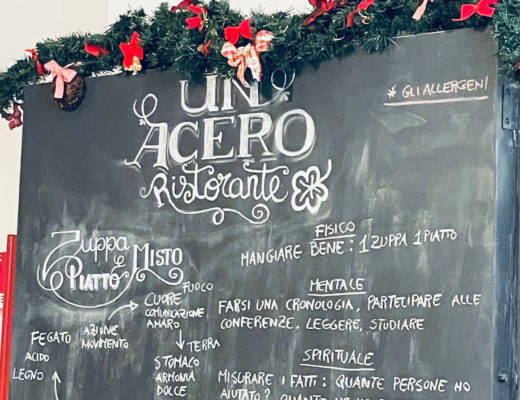 UN
ACERO
Ristorante
* GLI ALLERGENI
Zuppa
e
PIATTO MISTO
FISICO
MANGIARE BENE: 1 ZUPPA 1 PIATTO
MENTALE
FARSI UNA CRONOLOGIA, PARTECIPARE ALLE
CONFERENZE, LEGGERE, STUDIARE
SPIRITUALE
MISURARE I FATTI: QUANTE PERSONE HO
AIUTATO?
FUOCO
CUORE
COMUNICAZIONE
AMARO
AZIONE
MOVIMENTO
TERRA
STOMACO
ARMONIA
DOLCE
FEGATO
ACIDO
LEGNO